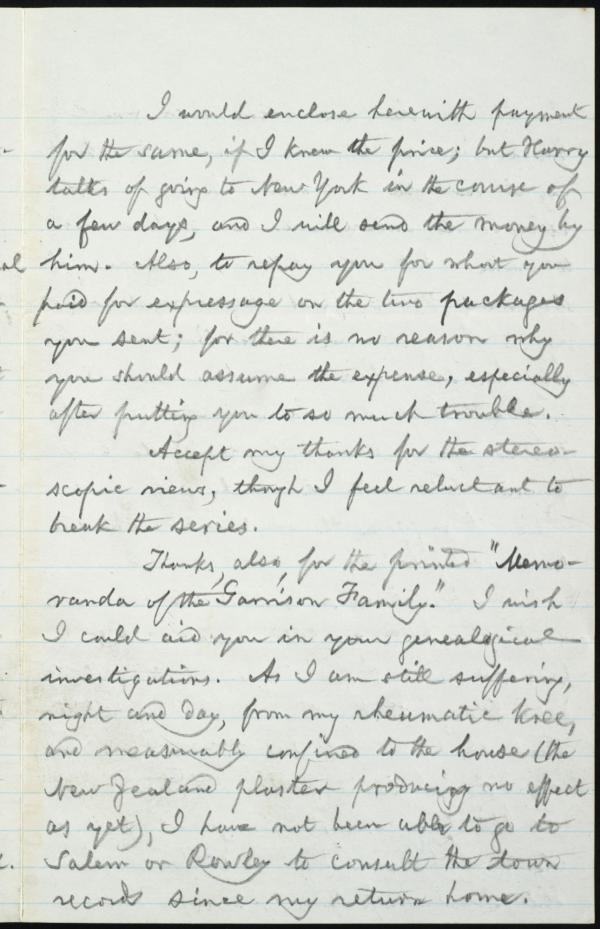 I would enclose herewith payment
for the same, if I knew the price; but Harry
talks of going to New York in the course of
a few days, and I will send the money by
him. Also, to repay you for what you
paid for expressage on the two packages
you sent; for there is no reason why
you should assume the expense, especially
after putting you to so much trouble.
Accept my thanks for the stereo-
scopic views, though I feel reluctant to
break the series.
Thanks, also, for the printed "Memo-
randa of the Garrison Family." I wish
I could aid you in your genealogical
investigations. As I am still suffering,
night and day, from my rheumatic knee,
and measurably confined to the house (the
New Zealand plaster producing no effect
as yet), I have not been able to go to
Salem or Rowley to consult the town
records since my return home.